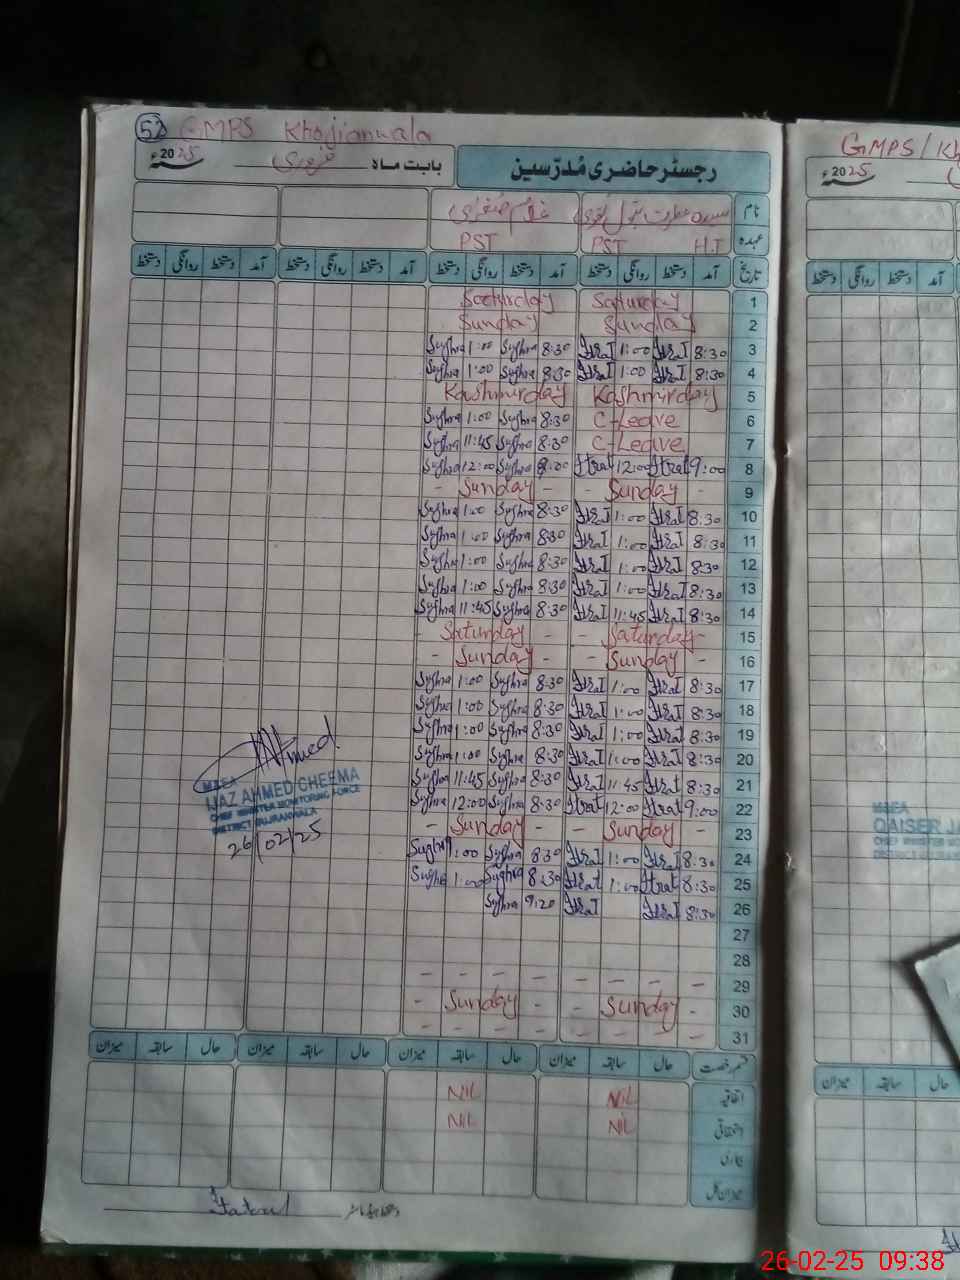 52 GMPS Khojjianwala
رجسٹر حاضری مُدرّسین بابت ماہ فروری 2025ء
نام
عہدہ H.T PST PST
تاریخ آمد دستخط روانگی دستخط آمد دستخط روانگی دستخط آمد دستخط روانگی دستخط آمد دستخط روانگی دستخط
1 Saturday Saturday
2 Sunday Sunday
3 8:30 Itrat 1:00 Itrat 8:30 Sughra 1:00 Sughra
4 8:30 Itrat 1:00 Itrat 8:30 Sughra 1:00 Sughra
5 Kashmirday Kashmirday
6 C-Leave 8:30 Sughra 1:00 Sughra
7 C-Leave 8:30 Sughra 11:45 Sughra
8 9:00 Itrat 12:00 Itrat Sughra 12:00 Sughra
9 - Sunday - - Sunday -
10 8:30 Itrat 1:00 Itrat 8:30 Sughra 1:00 Sughra
11 8:30 Itrat 1:00 Itrat 8:30 Sughra 1:00 Sughra
12 8:30 Itrat 1:00 Itrat 8:30 Sughra 1:00 Sughra
13 8:30 Itrat 1:00 Itrat 8:30 Sughra 1:00 Sughra
14 8:30 Itrat 11:45 Itrat 8:30 Sughra 11:45 Sughra
15 - Saturday - - Saturday -
16 - Sunday - - Sunday -
17 8:30 Itrat 1:00 Itrat 8:30 Sughra 1:00 Sughra
18 8:30 Itrat 1:00 Itrat 8:30 Sughra 1:00 Sughra
19 8:30 Itrat 1:00 Itrat 8:30 Sughra 1:00 Sughra
20 8:30 Itrat 1:00 Itrat 8:30 Sughra 1:00 Sughra
21 8:30 Itrat 11:45 Itrat 8:30 Sughra 11:45 Sughra
22 9:00 Itrat 12:00 Itrat 8:30 Sughra 12:00 Sughra
23 - Sunday - - Sunday -
24 8:30 Itrat 1:00 Itrat 8:30 Sughra 1:00 Sughra
25 8:30 Itrat 1:00 Itrat 8:30 Sughra 1:00 Sughra
26 8:30 Itrat Itrat 9:20 Sughra
27
28
29 - - - - - - - -
30 - Sunday - - Sunday -
31 - - - - - - - -
Ahmed
M&EA
IJAZ AHMED CHEEMA
CHIEF MINISTER MONITORING FORCE
DISTRICT GUJRANWALA
26/02/25
قسم رخصت حال سابقہ میزان حال سابقہ میزان حال سابقہ میزان حال سابقہ میزان
اتفاقیہ NIL NIL
استحقاقی NIL NIL
بیماری
میزان کل
دستخط ہیڈ ماسٹر
GMPS/Kh
2025ء
آمد دستخط روانگی دستخط
M&EA
QAISER JA
CHIEF MINISTER MO
حال سابقہ میزان
26-02-25 09:38